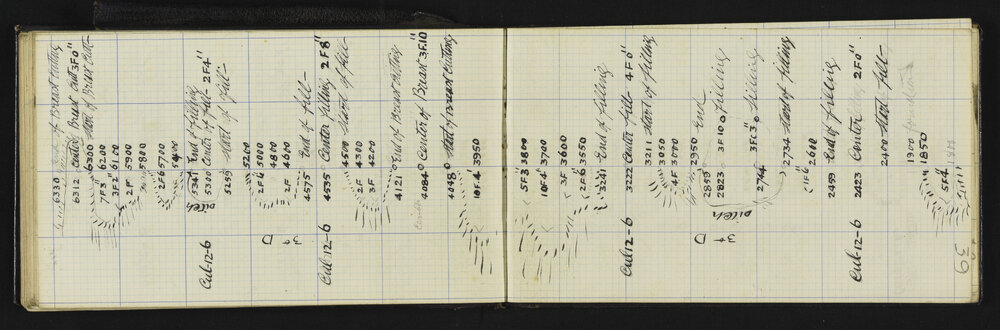 6330 End of Breast Cutting
6312 Center Breast Cut 3F0"
6300 Start of Breast Cut
7F3" 6200
3F2" 6100
2F" 5900
5800
2F6 5700
5400
5341 End of filling
5300 Center of fill 2F4"
5259 Start of fill
ditch
Cul-12-6
5200
2F6 5000
4800
2F" 4600
4575 End of fill
4535 Center filling 2F8"
4500 Start of fill
Cul-12-6
3rd D
2F" 4300
3F" 4200
4121 End of Breast Cutting
4084 Center of Breast 3F10
4048 Start of Breast Cutting
10F4" 3950
5F3" 3800
10F4" 3700
3F" 3600
2F6 3550
3241 End of filling
3222 Center fill 4F0"
3211 Start of filling
Cul-12-6
3050
4F 3000
2950 End
2859
2823 3F10 filling
ditch
3rd D
2744 3F3 filling
2734 Start of filling
1F6" 2610
2459 End of filling
2423 Center filling 2F0"
2400 Start fill
Cul-12-6
1900
1850
5F4"
39